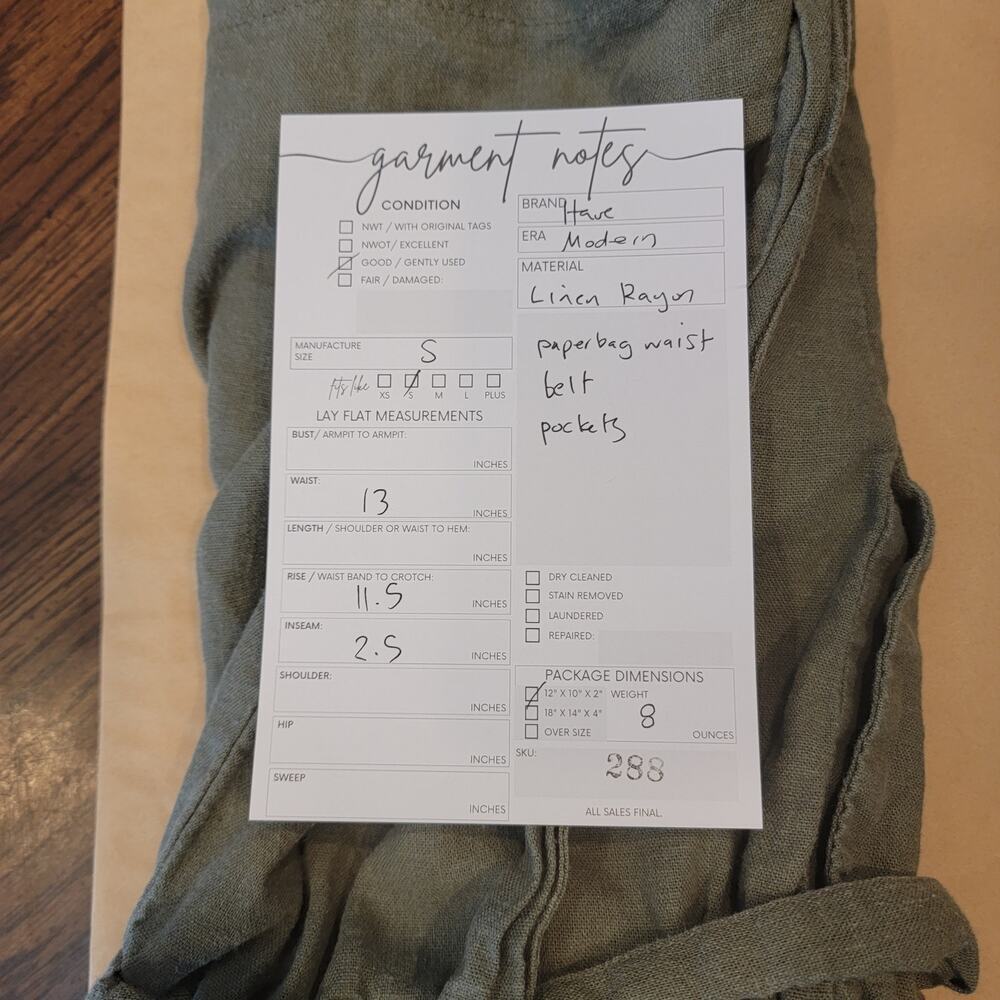 garment notes
CONDITION
NWT / WITH ORIGINAL TAGS
NWOT/ EXCELLENT
GOOD / GENTLY USED
FAIR / DAMAGED:
MANUFACTURE SIZE
S
fits like
XS S M L PLUS
LAY FLAT MEASUREMENTS
BUST/ ARMPIT TO ARMPIT:
INCHES
WAIST:
13
INCHES
LENGTH / SHOULDER OR WAIST TO HEM:
INCHES
RISE / WAIST BAND TO CROTCH:
11.5
INCHES
INSEAM:
2.5
INCHES
SHOULDER:
INCHES
HIP
INCHES
SWEEP
INCHES
BRAND Have
ERA Modern
MATERIAL
Linen Rayon
paperbag waist
belt
pockets
DRY CLEANED
STAIN REMOVED
LAUNDERED
REPAIRED:
PACKAGE DIMENSIONS
12" X 10" X 2" WEIGHT
18" X 14" X 4" 8
OVER SIZE OUNCES
SKU:
288
ALL SALES FINAL.